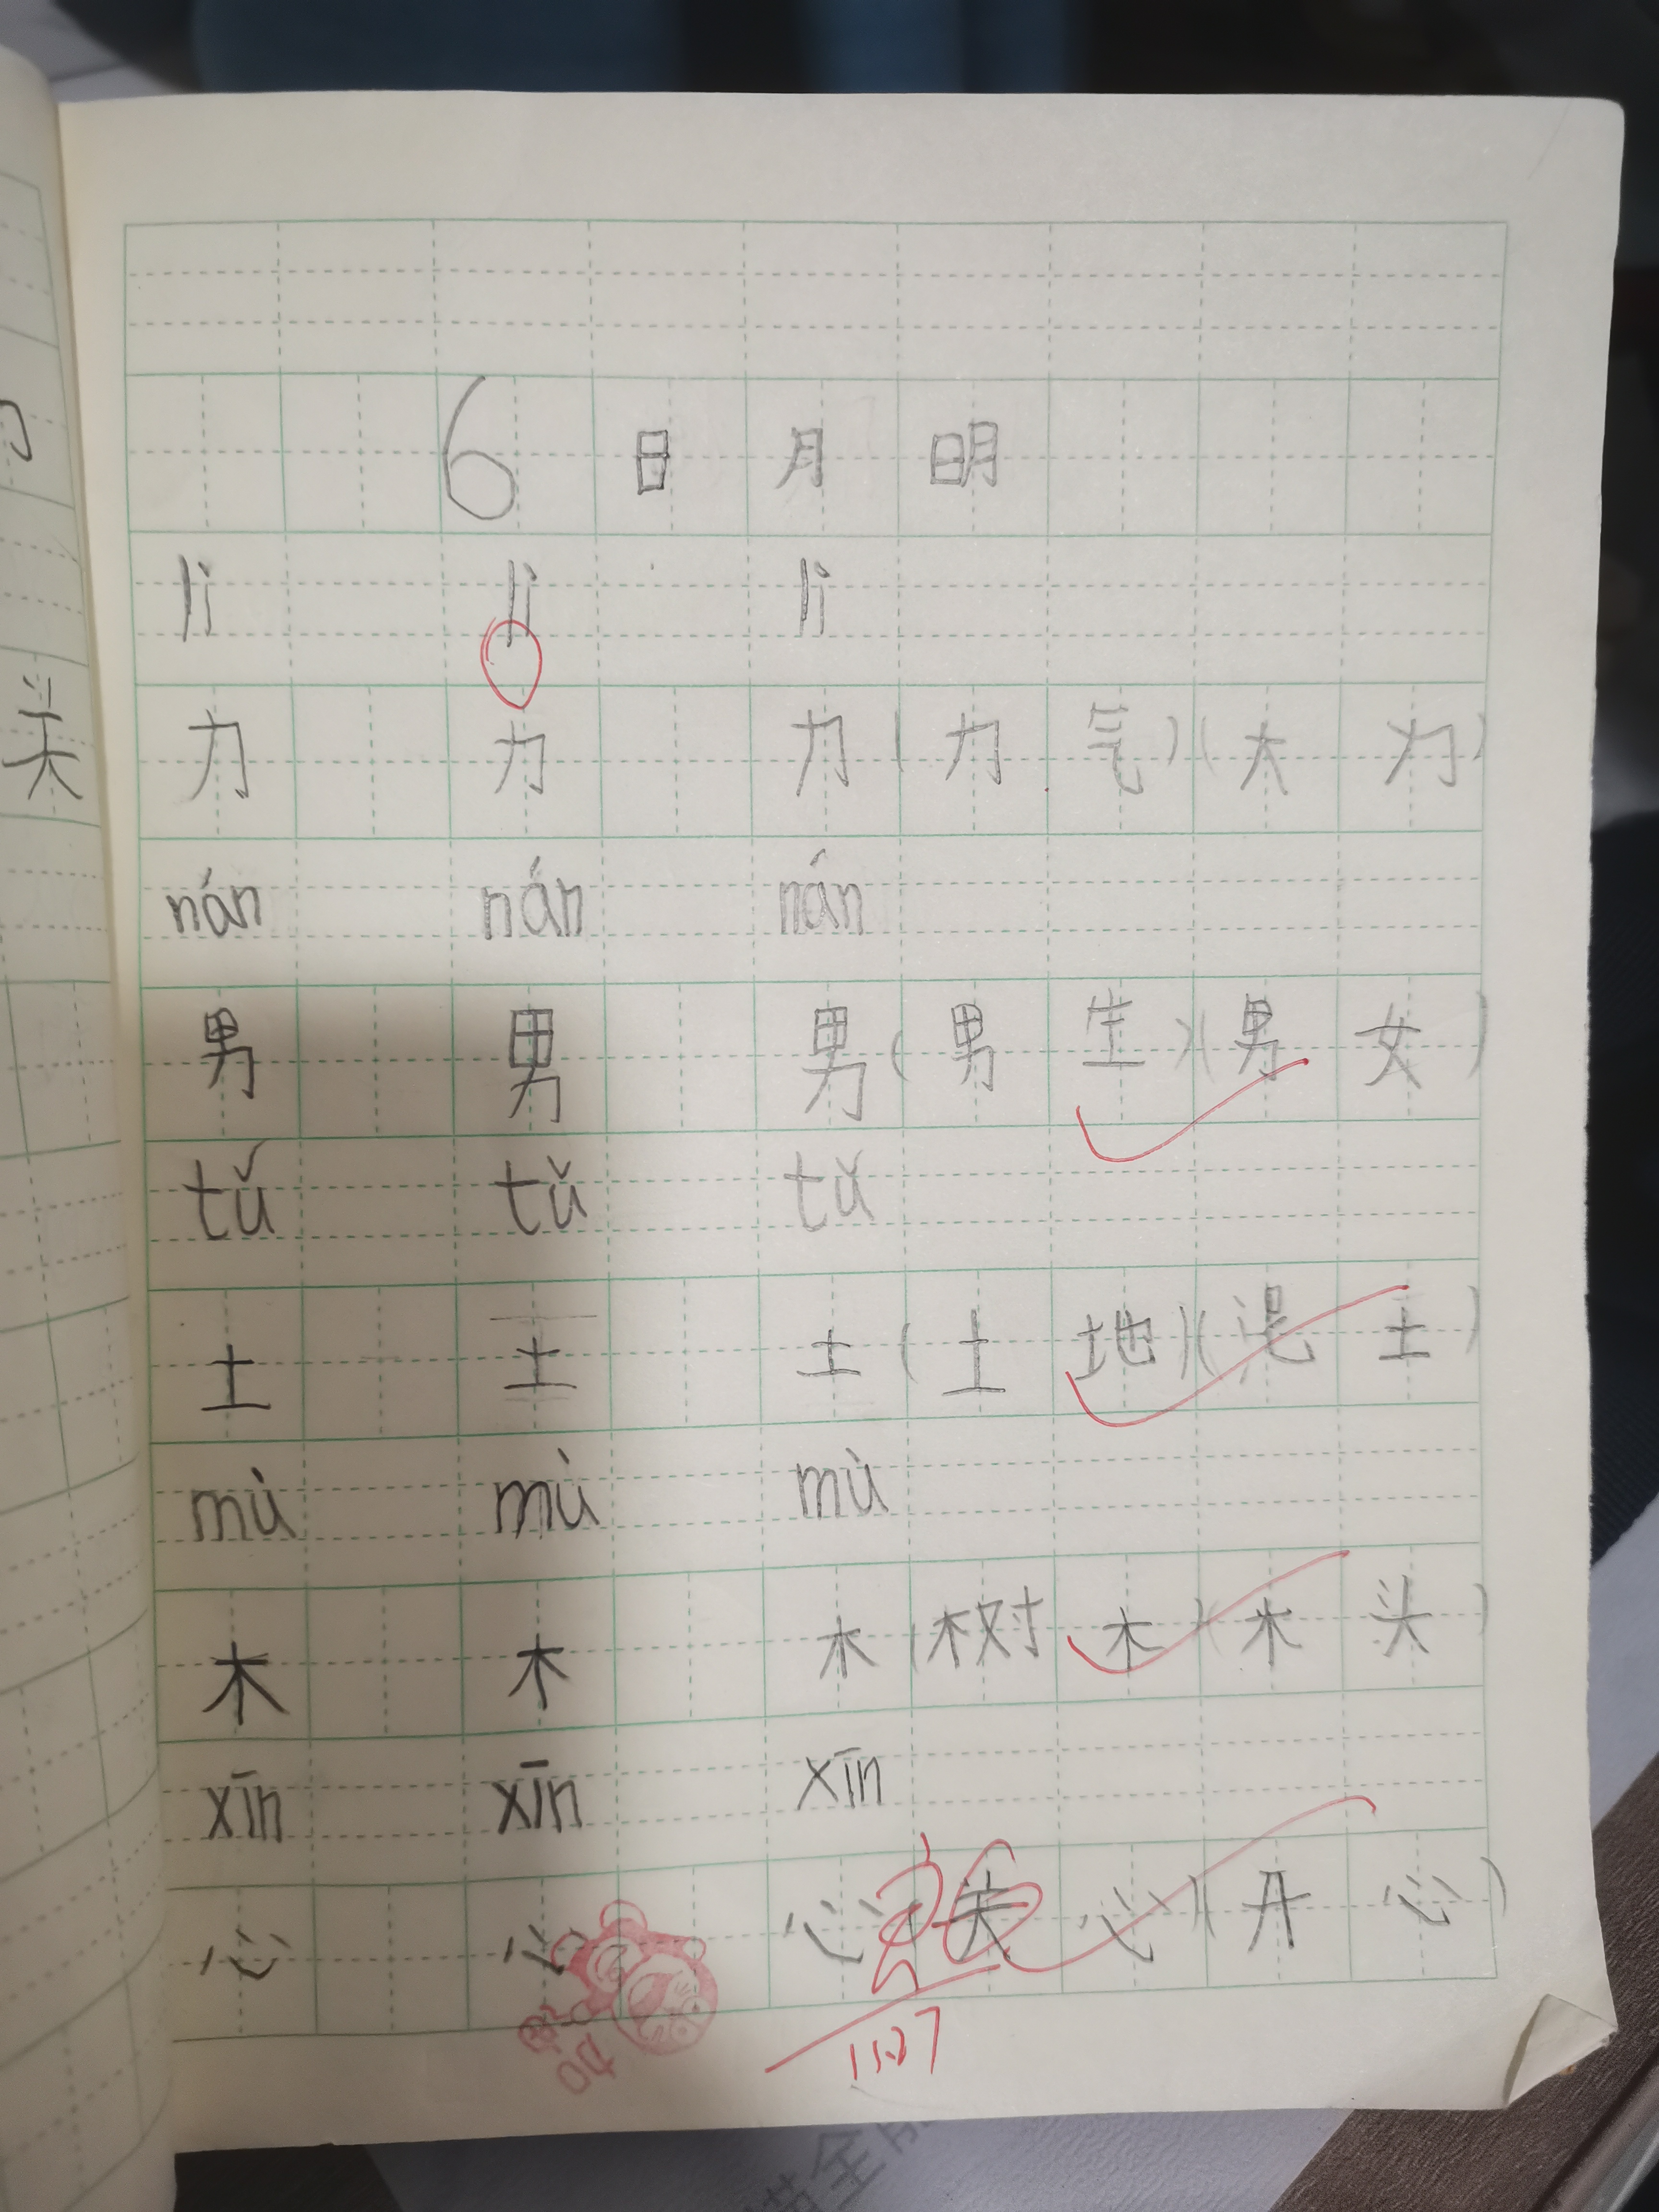 6 日 月 明
li li li
力 力 力(力 气)(大 力)
nán nán nán
男 男 男(男 生)(男 女)
tǔ tǔ tǔ
土 土 土(土 地)(泥 土)
mù mù mù
木 木 木(树 木)(木 头)
xīn xīn xīn
心 心 心(关 心)(开 心)
11.27
关